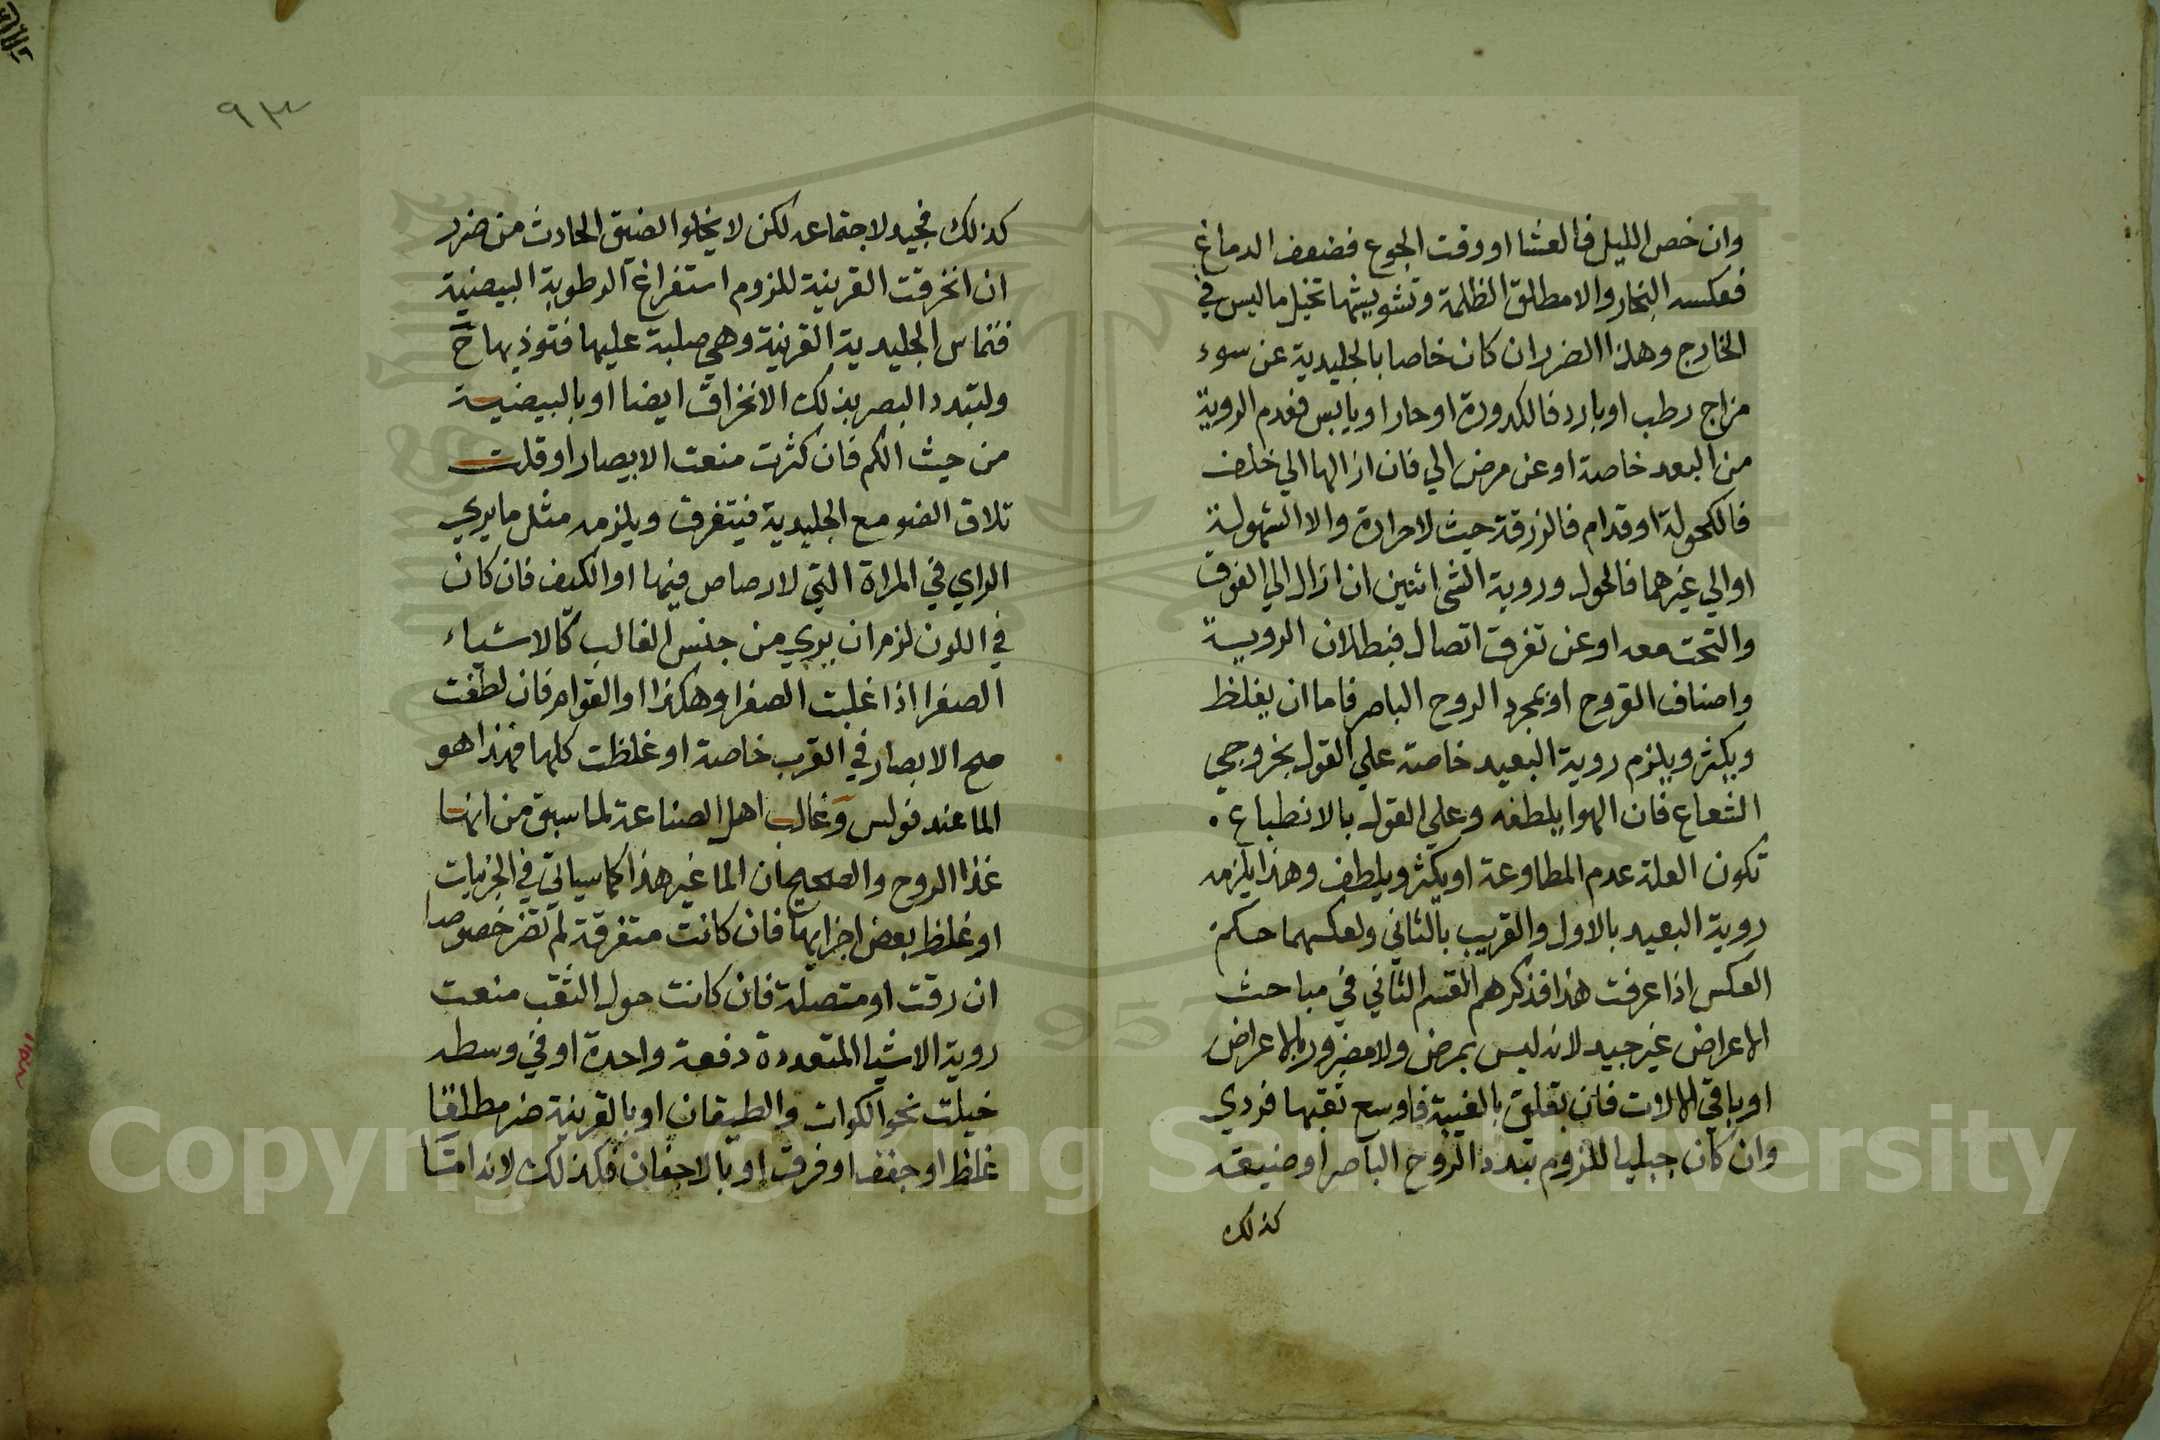 وان خص الليل فالعشا او وقت الجوع فضعف الدماغ
فعكسه البخار والا مطلق الظلمة وتشويشها تخيل ما ليس في
الخارج وهذا الضرر ان كان خاصا بالجليدية عن سوء
مزاج رطب او بارد فالكدورة او حار او يابس فعدم الروية
من البعد خاصة او عن مرض الي فان ازالها الي خلف
فالكحولة او قدام فالزرقة حيث لا حرارة والا الشهولية
او الي غيرهما فالحول وروية الشي اثنين ان ازال الي الفوق
والتحت معه او عن تفرق اتصال فبطلان الروية
واصناف القروح او بمجرد الروح الباصر فاما ان يغلظ
ويكثر ويلزم روية البعيد خاصة علي القول بخروج
الشعاع فان الهوا يلطفه وعلي القول بالانطباع .
تكون العلة عدم المطاوعة او يكثر ويلطف وهذا يلزمه
روية البعيد بالاول والقريب بالثاني ولعكسهما حكم
العكس اذا عرفت هذا فذكرهم القسم الثاني في مباحث
الاعراض غير جيد لانه ليس بمرض ولا مضرور بالاعراض
او باقي الالات فان تعلق بالعنبية فاوسع ثقبها فردي
وان كان جبليا للزوم تبدد الروح الباصر او ضيقه
كذلك
٩٣
كذلك فجيد لاجتماعه لكن لا يخلوا الضيق الحادث من ضرر
ان انخرقت القرنية للزوم استفراغ الرطوبة البيضية
فتماس الجليدية القرنية وهي صلبة عليها فتوذيها ح
ولتبدد البصر بذلك الانخراق ايضا او بالبيضية
من حيث الكم فان كثرت منعت الابصار او قلت
تلاق الضو مع الجليدية فيتفرق ويلزمه مثل ما يري
الراي في المراة التي لا رصاص فيها او الكيف فان كان
في اللون لزم ان يري من جنس الغالب كالاشياء
الصفرا اذا غلبت الصفرا وهكذا او القوام فان لطفت
صح الابصار في القرب خاصة او غلظت كلها فهذا هو
الما عند فولس وغالب اهل الصناعة لما سبق من انها
غذا الروح والصحيح ان الما غير هذا كما سياتي في الجزييات
او غلظ بعض اجزايها فان كانت متفرقة لم تضر خصوصا
ان رقت او متصلة فان كانت حول الثقب منعت
روية الاشيا المتعددة دفعة واحدة او في وسطه
خيلت نحو الكوات والطيقان او بالقرنية ضر مطلقا
غلظ او جفف او فرق او بالاجفان فكذلك لانه اما